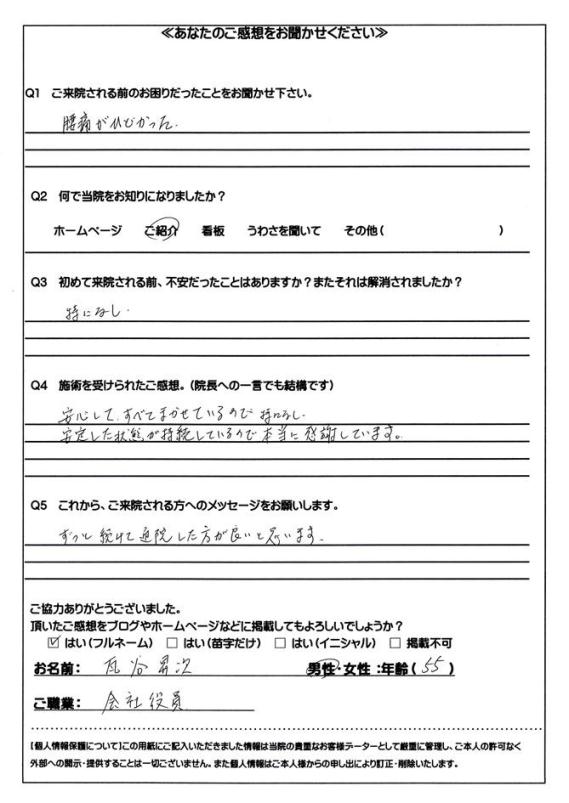 ≪あなたのご感想をお聞かせください≫
Q1 ご来院される前のお困りだったことをお聞かせ下さい。
腰痛がひどかった.
Q2 何で当院をお知りになりましたか？
ホームページ ご紹介 看板 うわさを聞いて その他( )
Q3 初めて来院される前、不安だったことはありますか？またそれは解消されましたか？
特になし.
Q4 施術を受けられたご感想。（院長への一言でも結構です）
安心して、すべてまかせているので 特になし.
安定した状態が持続しているので本当に感謝しています。
Q5 これから、ご来院される方へのメッセージをお願いします。
ずっと続けて通院した方が良いと思います.
ご協力ありがとうございました。
頂いたご感想をブログやホームページなどに掲載してもよろしいでしょうか？
☑ はい（フルネーム） □ はい（苗字だけ） □ はい（イニシャル） □ 掲載不可
お名前： 瓦谷昇次 男性・女性：年齢（ 55 ）
ご職業： 会社役員
【個人情報保護について】この用紙にご記入いただきました情報は当院の貴重なお客様データーとして厳重に管理し、ご本人の許可なく
外部への開示・提供することは一切ございません。また個人情報はご本人様からの申し出により訂正・削除いたします。